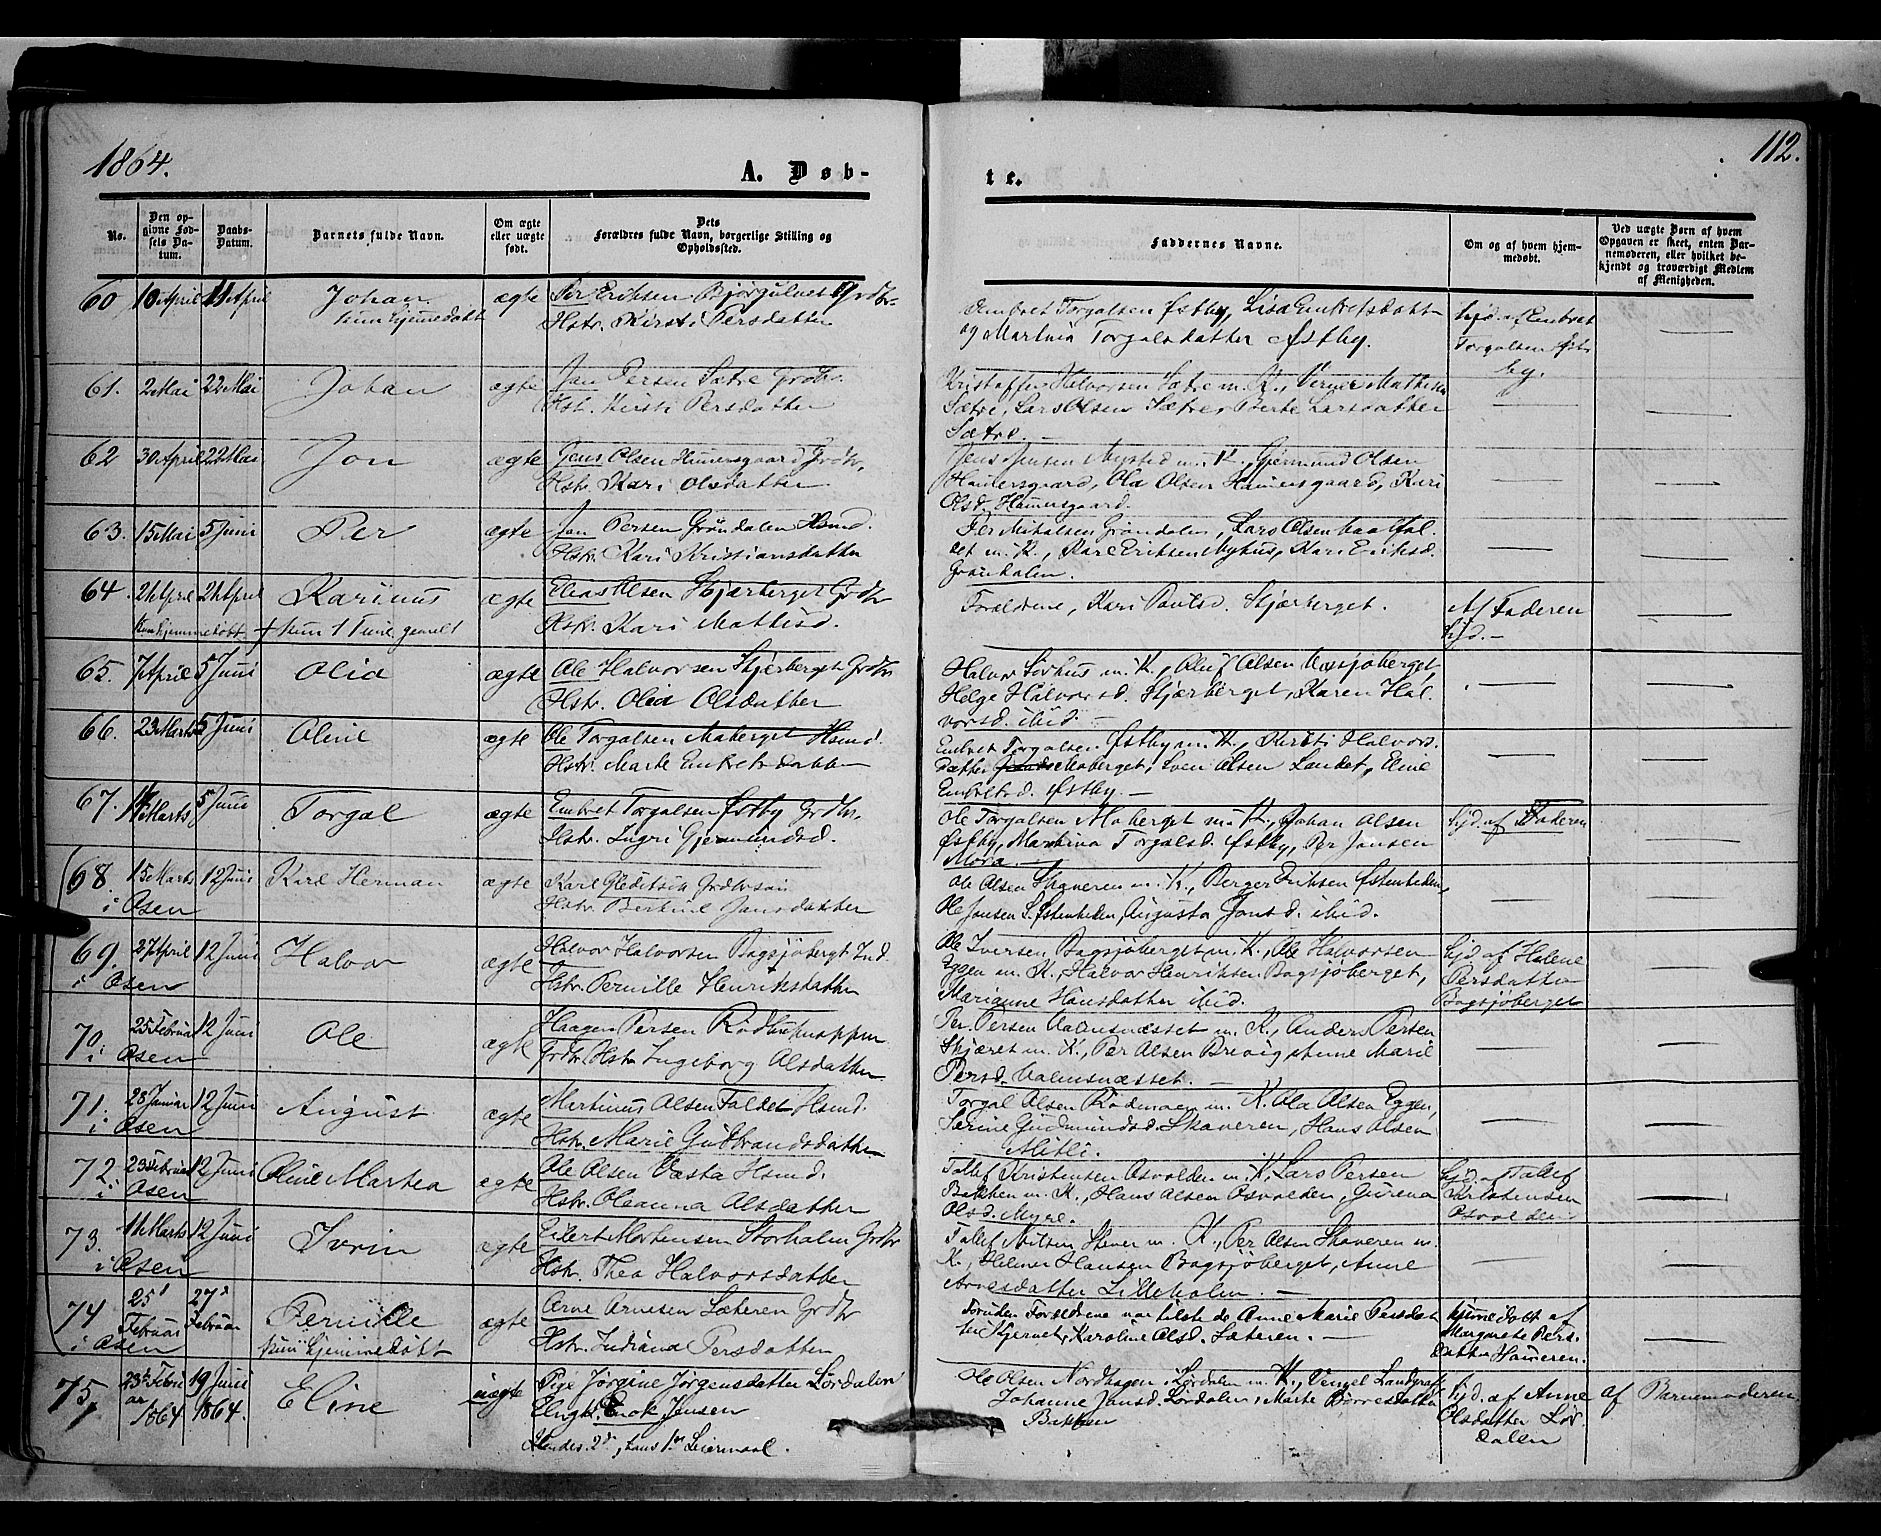 1864.
A. Døb-
te.
112.
No.
Den op-
givne Fød-
sels Da-
tum.
Daabs-
Datum.
Barnets fulde Navn.
Om ægte
eller uægte
født.
Dets
Forældres fulde Navn, borgerlige Stilling og
Opholdssted.
Faddernes Navne.
Om og af hvem hjem-
medøbt.
Ved uægte Børn af hvem
Opgaven er skeet, enten Bar-
nemoderen, eller hvilket be-
kjendt og troværdigt Medlem
af Menigheden.
60 10 April 11 April Johan ægte Per Eriksen Grdbr.
kun hjemmedøbt Hstr. Kirsti Persdatter
Embret Torgalsen Østby, Lisa Embretsdatter
og Martinia Torgalsdatter Østby.
hjd. af Embret
Torgalsen Øst-
by.
61. 2 Mai 22 Mai Johan ægte Jon Persen Sætre Grdbr.
Hstr. Kirsti Persdatter
Kristoffer Halvorsen Sætre m. K., Verner Mathisen
Sætre, Lars Olsen Sætre, Berte Larsdatter
Sætre. —
62 30 April 22 Mai Jon ægte Jens Olsen Humersgaard Grdbr.
Hstr. Kari Olsdatter
Jens Jensen Nysted m. K., Gjermund Olsen
Humersgaard, Ola Olsen Humersgaard, Kari
Olsd. Humersgaard.
63. 15 Mai 5 Juni Per ægte Jon Persen Grøndalen Hsmd.
Hstr. Kari Kristiansdatter
Per Mikalsen Grøndalen, Lars Olsen
m. K., Kari Eriksen Nyhus, Kari Eriksd.
Grøndalen.
64. 21 April 21 April Karinus ægte Elias Olsen Skjærberget Grdbr
kun hjemmedøbt, † kun 1 Time gamelt Hstr. Kari Mattisd.
Forældrene, Kari Paulsd. Skjærberget.
Af Faderen
hjd. —
65. 7 April 5 Juni Olia ægte Ole Halvorsen Skjærberget Grdbr
Hstr. Olea Olsdatter
Halvor Sørhus m. K., Oluf Olsen
Helge Halvorsd. Skjærberget, Karen Hal-
vorsd. ibid. —
66. 23 Marts 5 Juni Oline ægte Ole Torgalsen Moberget Hsmd.
Hstr. Marte Embretsdatter
Embret Torgalsen Østby m. K., Kirsti Halvors-
datter Moberget, Sven Olsen Landet, Eline
Embretsd. Østby. —
67. Marts 5 Juni Torgal ægte Embret Torgalsen Østby Grdbr.
Hstr. Ingri Gjermundsd.
Ole Torgalsen Moberget m. K., Johan Olsen
Østby, Martina Torgalsd. Østby, Per Jonsen
Mora. —
hjd. af Faderen
68 15 Marts 12 Juni Karl Herman ægte Karl Gleditsch
i Osen Hstr. Bertine Jonsdatter
Ole Olsen Skaveren m. K., Berger Eriksen Østenheden,
Ole Jonsen S. Østenheden, Augusta Jonsd. ibid.
69. 27 April 12 Juni Halvor ægte Halvor Halvorsen Bagsjøberget Ind.
i Osen Hstr. Pernille Henriksdatter
Ole Iversen Bagsjøberget m. K., Ole Halvorsen
Eggen m. K., Halvor Henriksen Bagsjøberget,
Marianne Hansdatter ibid.
hjd. af Helene
Persdatter
Bagsjøberget
70. 25 Februar 12 Juni Ole ægte Haagen Persen
i Osen Grdbr. Hstr. Ingeborg Olsdatter
Per Persen Valmsnæsset m. K., Anders Persen
Skjæret m. K., Per Olsen Brevig, Anne Marie
Persd. Valmsnæsset. —
71. 28 Januar 12 Juni August ægte Martinus Olsen Faldet Hsmd.
i Osen Hstr. Marie Gudbrandsdatter
Torgal Olsen Rødmoen m. K. Ola Olsen Eggen,
Serine Gudmundsd. Skaveren, Hans Olsen
Mitli.
72. 23 Februar 12 Juni Oline Martea ægte Ole Olsen Væsta Hsmd.
i Osen Hstr. Oleanna Olsdatter
Tollef Kristensen Osvolden m. K., Lars Persen
Bakken m. K., Hans Olsen Osvolden, Gurena
Olsd. Myre.
hjd. af Tollef
Kristensen
Osvolden
73. 11 Marts 12 Juni Ivrin ægte Eilert Mortensen Storholm Grdbr
i Osen Hstr. Thea Halvorsdatter
Tollef Nilsen Skaver m. K., Per Olsen Skaveren m.
K., Helmer Hansen Bagsjøberget, Anne
Arnesdatter Lilleholm. —
74 25 Februar 27 Februar Pernille ægte Arne Arnesen Sæteren Grdbr
i Osen kun hjemmedøbt Hstr. Indiana Persdatter
Foruden Forældrene var tilstede Anne Marie Persdat-
ter Kjernet, Karoline Olsd. Sæteren. —
hjemmedøbt af
Margrete Pers-
datter Hameren.
75, 23de Febru-
ar 1864 19 Juni 1864. Eline uægte Pige Jørgine Jørgensdatter Lørdalen
Ungk. Enok Jensen
Hendes 2d, hans 1ste Leiermaal.
Ole Olsen Nordhagen i Lørdalen m. K., Vengel Landgraff
Johanne Jonsd. Lørdalen, Marte Børresdatter
Bakken
hjd. af Anne
Olsdatter Lør-
dalen
af Barnemoderen.